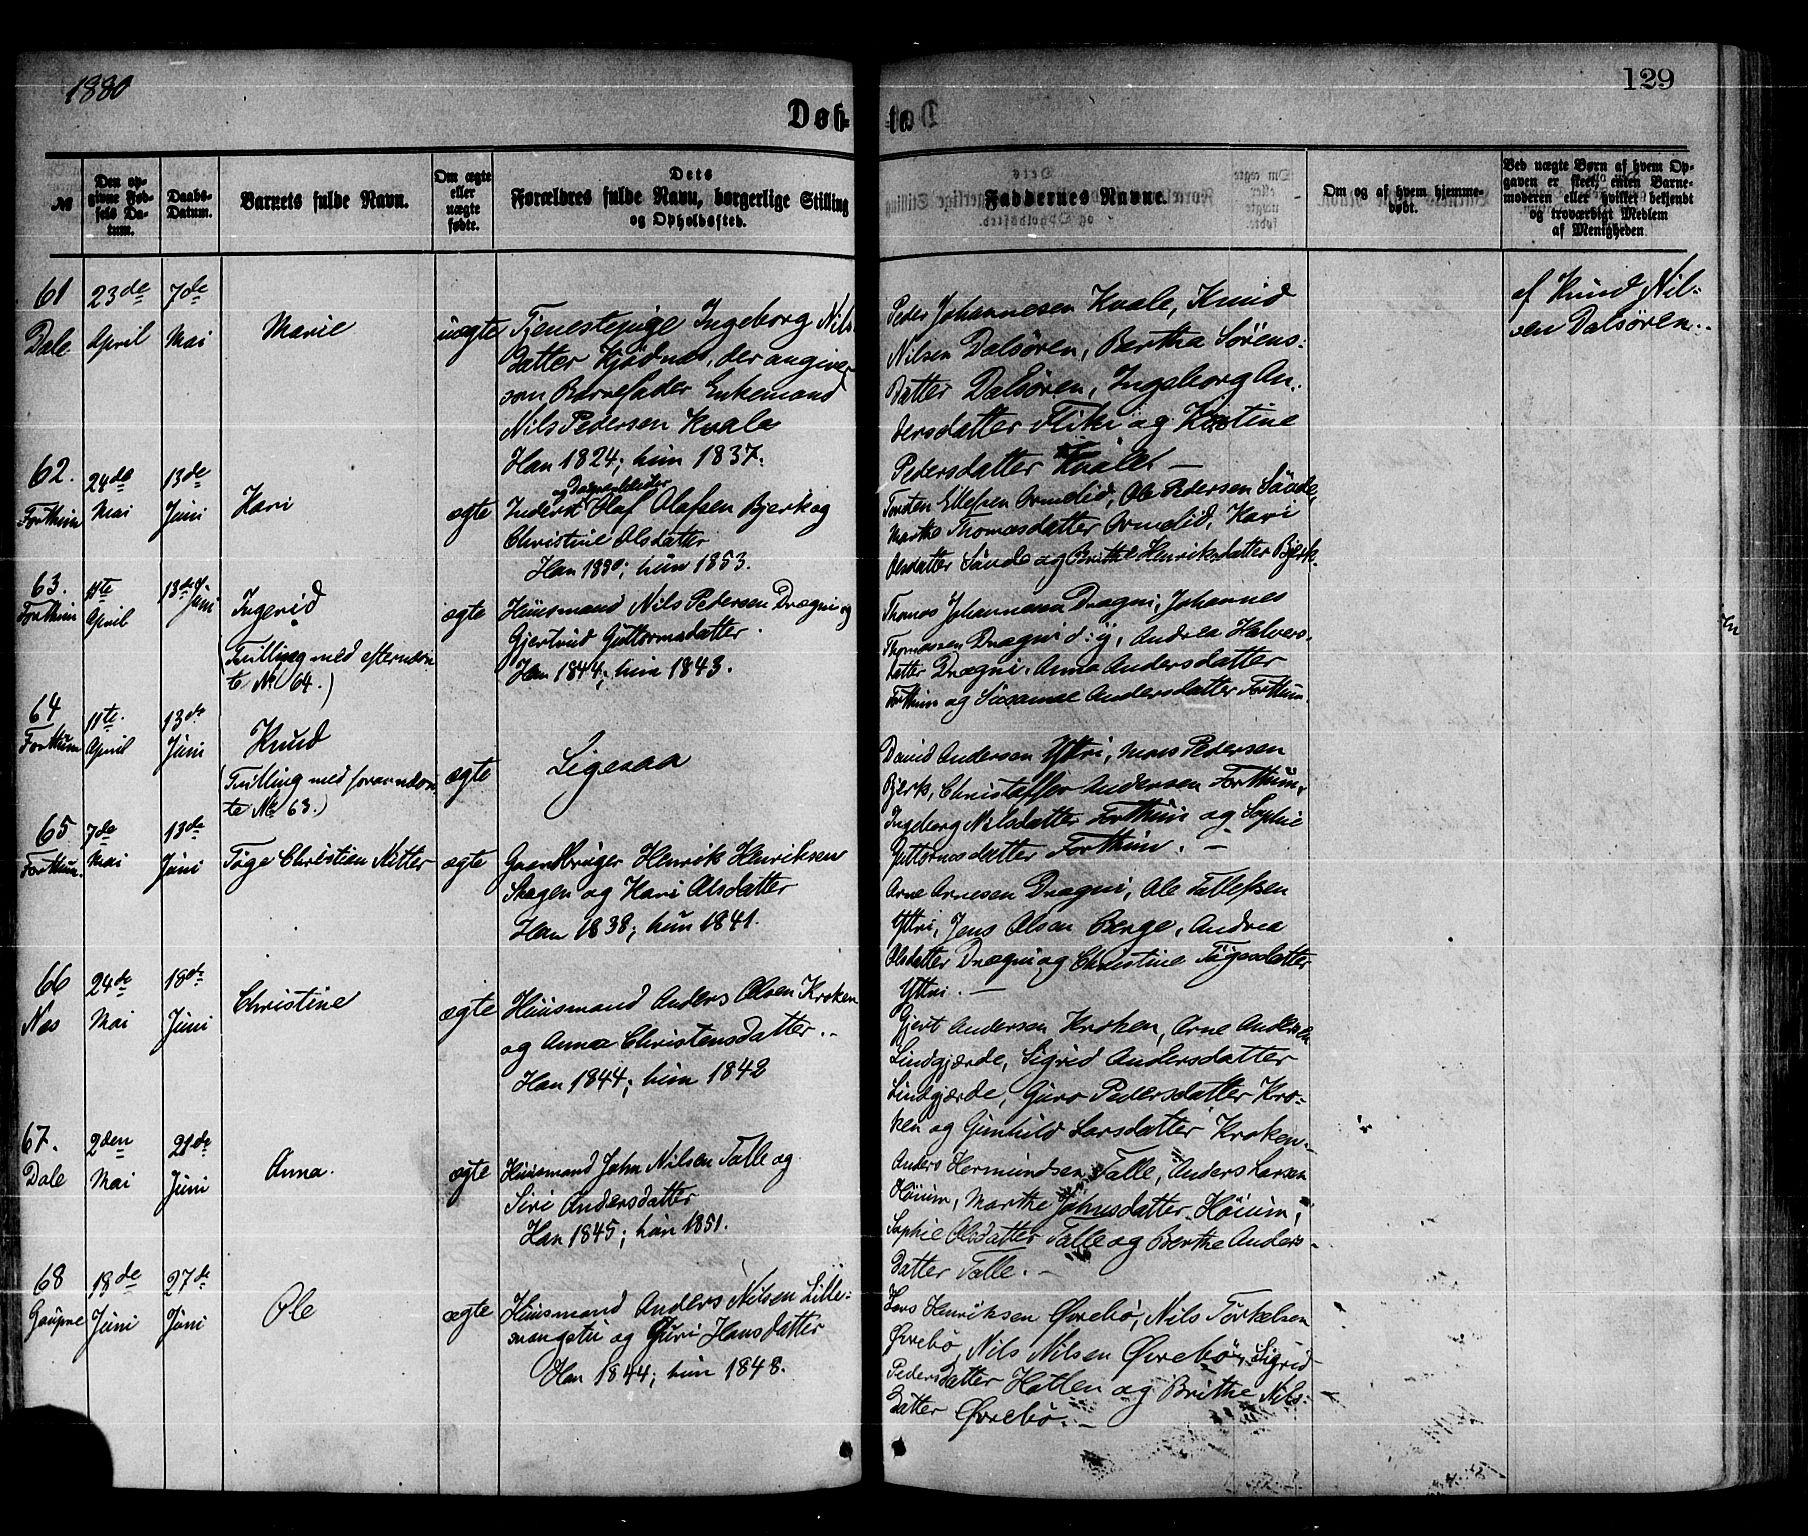 1880
129
Døb-
te
№
Den opgivne Fødsels Datum.
Daabs-Datum.
Barnets fulde Navn.
Om ægte eller uægte fødte.
Dets
Forældres fulde Navn, borgerlige Stilling
og Opholdssted.
Faddernes Navne.
Om og af hvem hjemmedøbt.
Ved uægte Børn af hvem Opgaven er skeet, enten Barnemoderen eller hvilket bekjendt og troværdigt Medlem af Menigheden
61 Dale
23de April
7de Mai
Marie
uægte
Tjenestepige Ingeborg Nils
datter Kjødnæs, der angiver
som Barnefader Enkemand
Nils Pedersen Kvale
Han 1824; hun 1837.
Peder Johannesen Kvale, Knud
Nilsen Dalsøren, Bertha Sørens-
datter Dalsøren, Ingeborg An-
dersdatter Flike og Kirstine
Pedersdatter Kvale. —
af Knud Nil-
sen Dalsøren.
62. Forthun
24de Mai
13de Juni
Kari
ægte
Inderst Olaf Olafsen Bjerk og
Christine Olsdatter
Han 1830; hun 1853.
Torsten Ellefsen Ormelid, Ole Pedersen Søvde,
Marthe Thomasdatter Ormelid, Kari
Olesdatter Søvde og Brithe Henriksdatter Bjerk.
63. Forthun
11te April
13de Juni
Ingerid
(Tvilling med efternævn
te № 64.)
ægte
Huusmand Nils Pedersen Drægni og
Gjertrud Guttormsdatter.
Han 1844; hun 1843.
Thomas Johannesen Drægni, Johannes
Thomassen Drægni d: y, Andrea Halvors-
datter Drægni. Anna Andersdatter
Forthun og Susanne Andersdatter Forthun.
64 Forthun
11te April
13de Juni
Knud
(Tvilling med forannævn
te № 63.)
ægte
Ligesaa
David Andersen Yttri, Mons Pedersen
Bjerk, Christoffer Andersen Forthun,
Ingeborg Nilsdatter Forthun og Sophie
Guttormsdatter Forthun. —
65 Forthun.
7de Mai
13de Juni
Tøge Christian Nitter
ægte
Gaardbruger Henrik Henriksen
Skagen og Kari Olsdatter
Han 1838; hun 1841.
Arne Arnesen Drægni, Ole Tollefsen
Yttri, Jens Olsen Berge, Andrea
Olsdatter Drægni og Christine Tøgesdatter
Yttri. —
66 Næs
24de Mai
18de Juni
Christine
ægte
Huusmand Anders Olsen Kroken
og Anna Christensdatter.
Han 1844; hun 1842
Gjert Andersen Kroken, Arne Andersen
Lindgjærde, Sigrid Andersdatter
Lindgjærde, Guro Pedersdatter Kro-
ken og Gunhild Larsdatter Kroken.
67. Dale
2den Mai
21de Juni
Anna.
ægte
Huusmand John Nilsen Talle og
Siri Andersdatter
Han 1845; hun 1851.
Anders Hermundsen Talle, Anders Larsen
Høium, Marthe Johnsdatter Høium,
Sophie Olsdatter Talle og Berthe Anders-
datter Talle. —
68 Gaupne
18de Juni
27de Juni
Ole
ægte
Huusmand Anders Nilsen Lille-
svangstu og Guri Hansdatter
Han 1844; hun 1848.
Lars Henriksen Øvrebø, Nils Torkelsen
Øvrebø, Nils Nilsen Øvrebø, Sigrid
Pedersdatter Hatlen og Brithe Nils-
datter Øvrebø. —